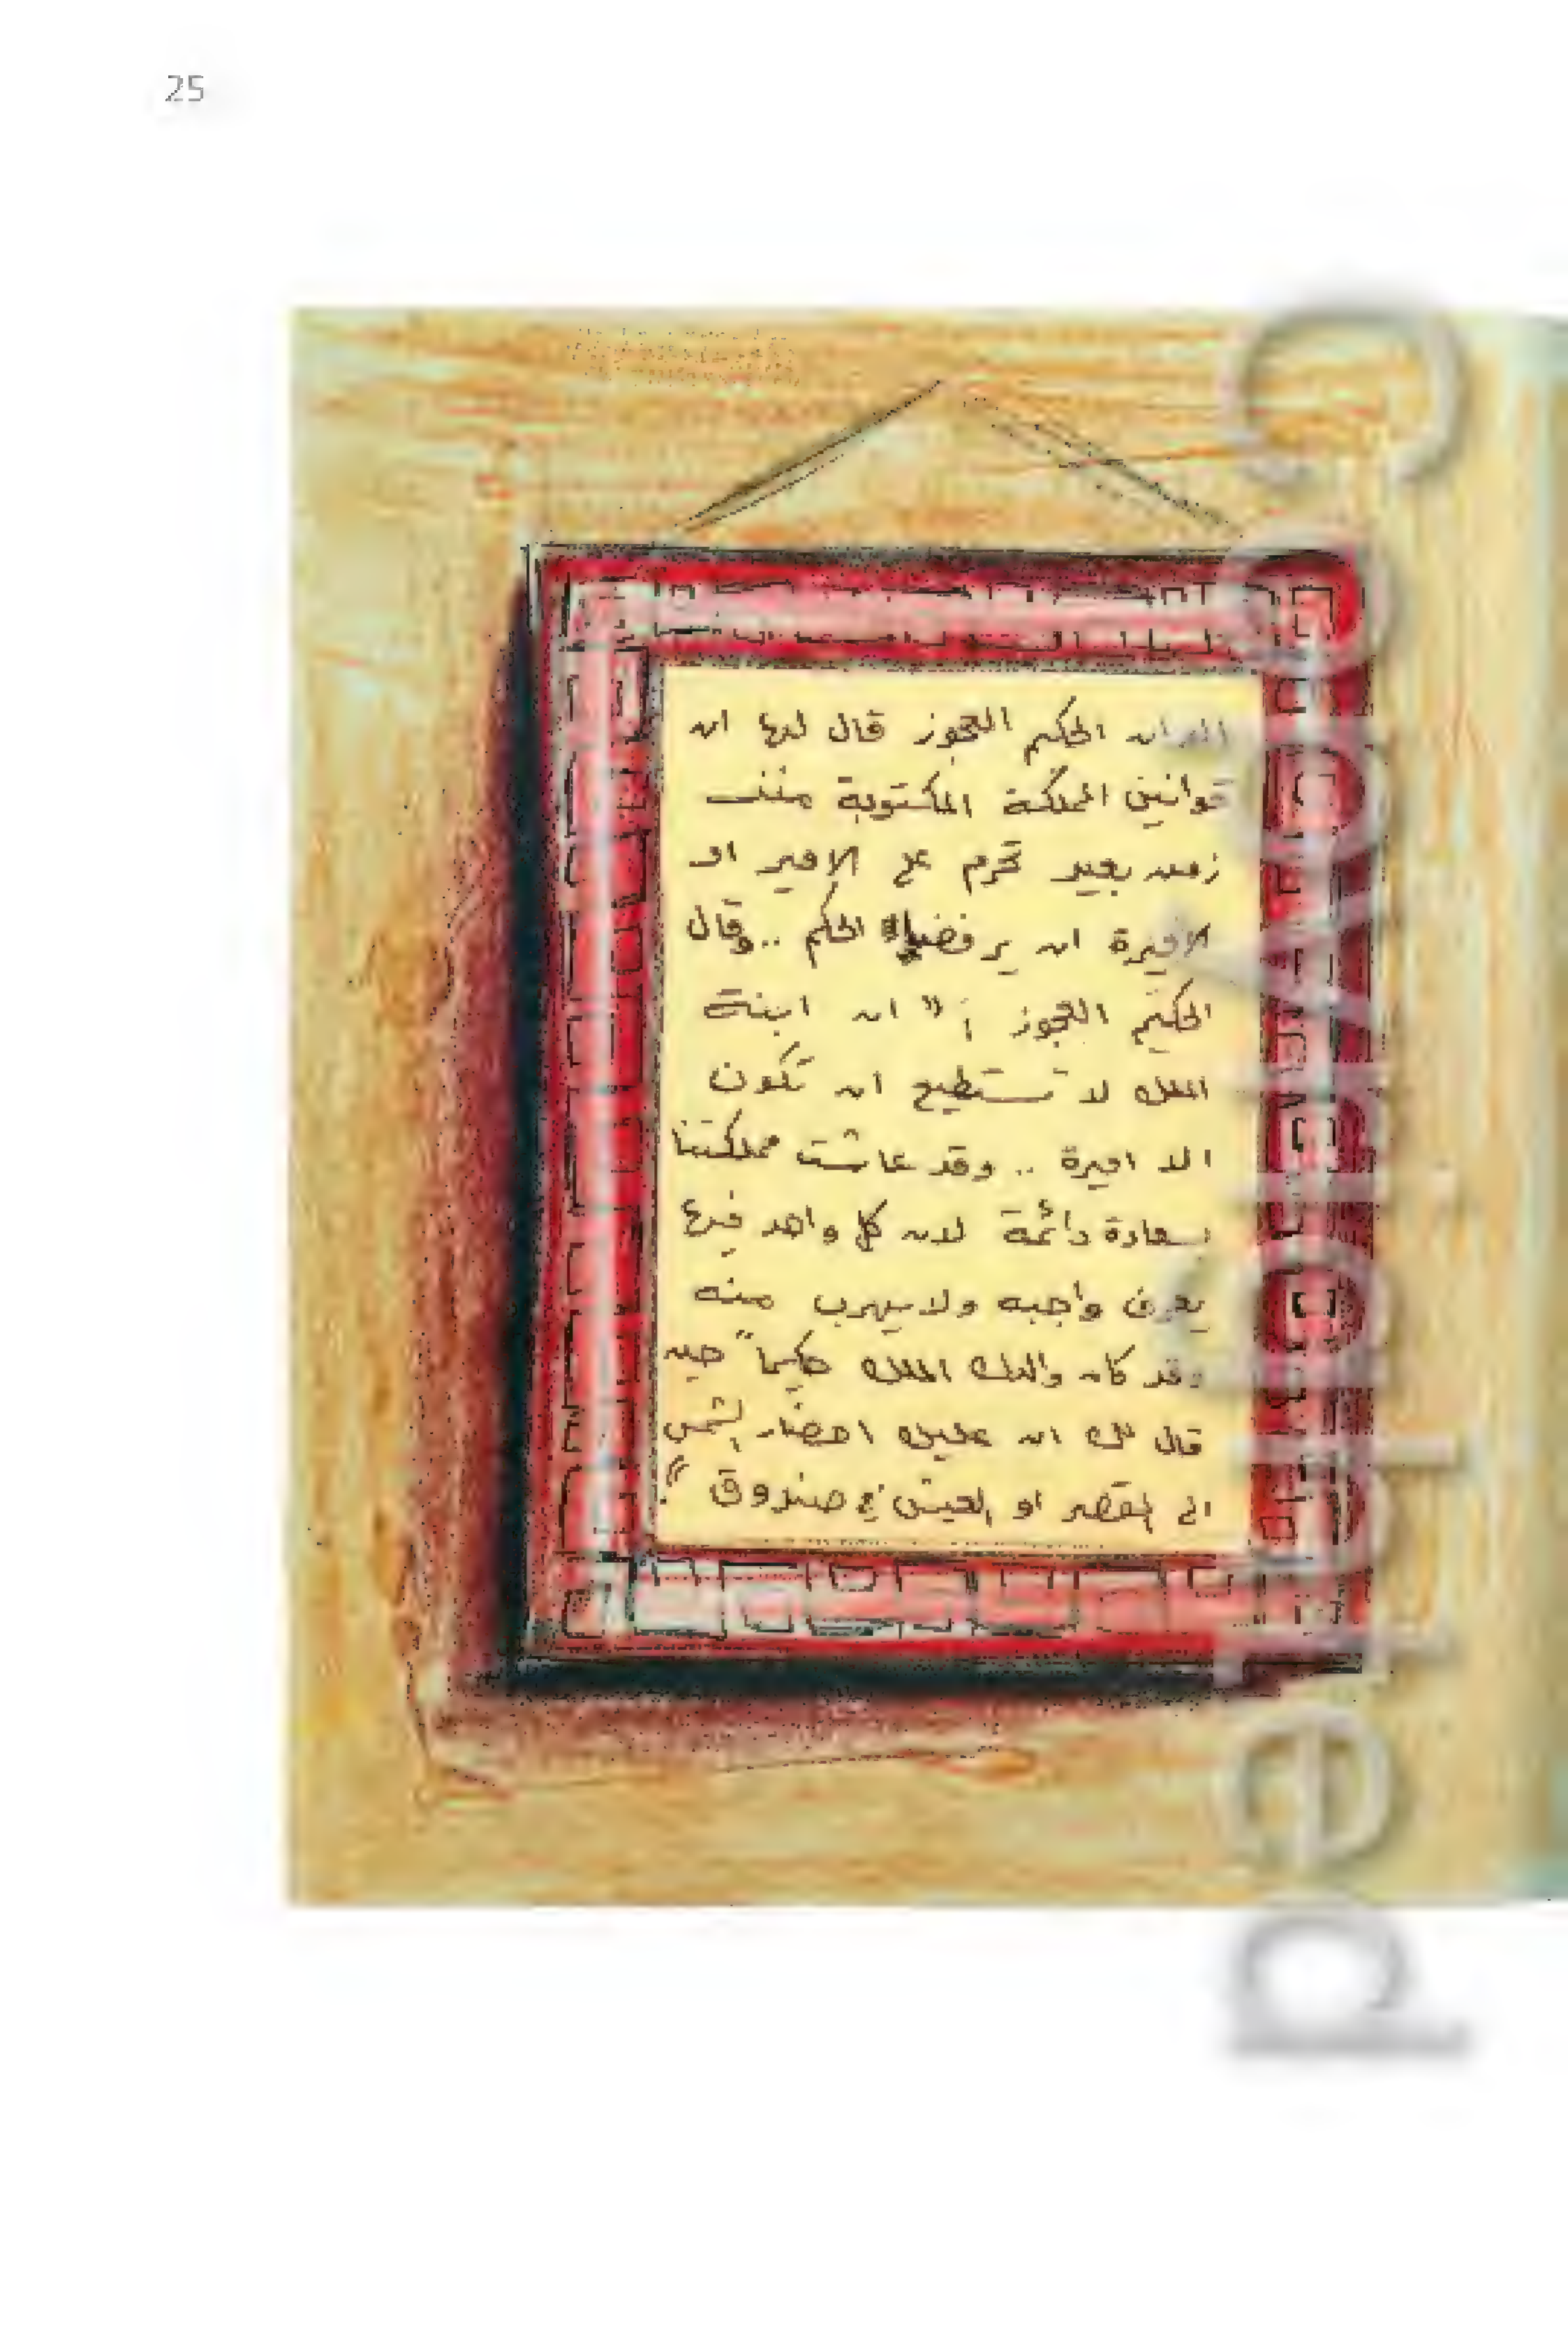 25
الا ان الحكيم العجوز قال لها ان
قوانين المملكة المكتوبة منذ
زمن بعيد تحرم على الامير او
الاميرة ان يرفضا الحكم .. وقال
الحكيم العجوز : " ان ابنة
الملك لا تستطيع ان تكون
الا اميرة .. وقد عاشت مملكتنا
بسعادة دائمة لان كل واحد فيها
يعرف واجبه ولا يهرب منه
وقد كان والدك الملك حكيماً حين
قال لك ان عليك احضار الشمس
الى القصر او العيش في صندوق ".